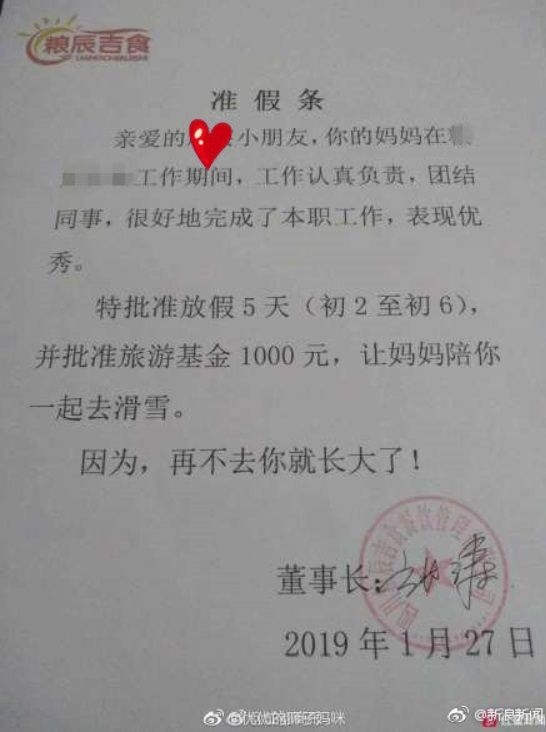 粮辰吉食
LIANGCHENJISHI
准假条
亲爱的小朋友，你的妈妈在
工作期间，工作认真负责，团结
同事，很好地完成了本职工作，表现优
秀。
特批准放假5天（初2至初6），
并批准旅游基金1000元，让妈妈陪你
一起去滑雪。
因为，再不去你就长大了！
董事长：
2019年1月27日
@新浪新闻